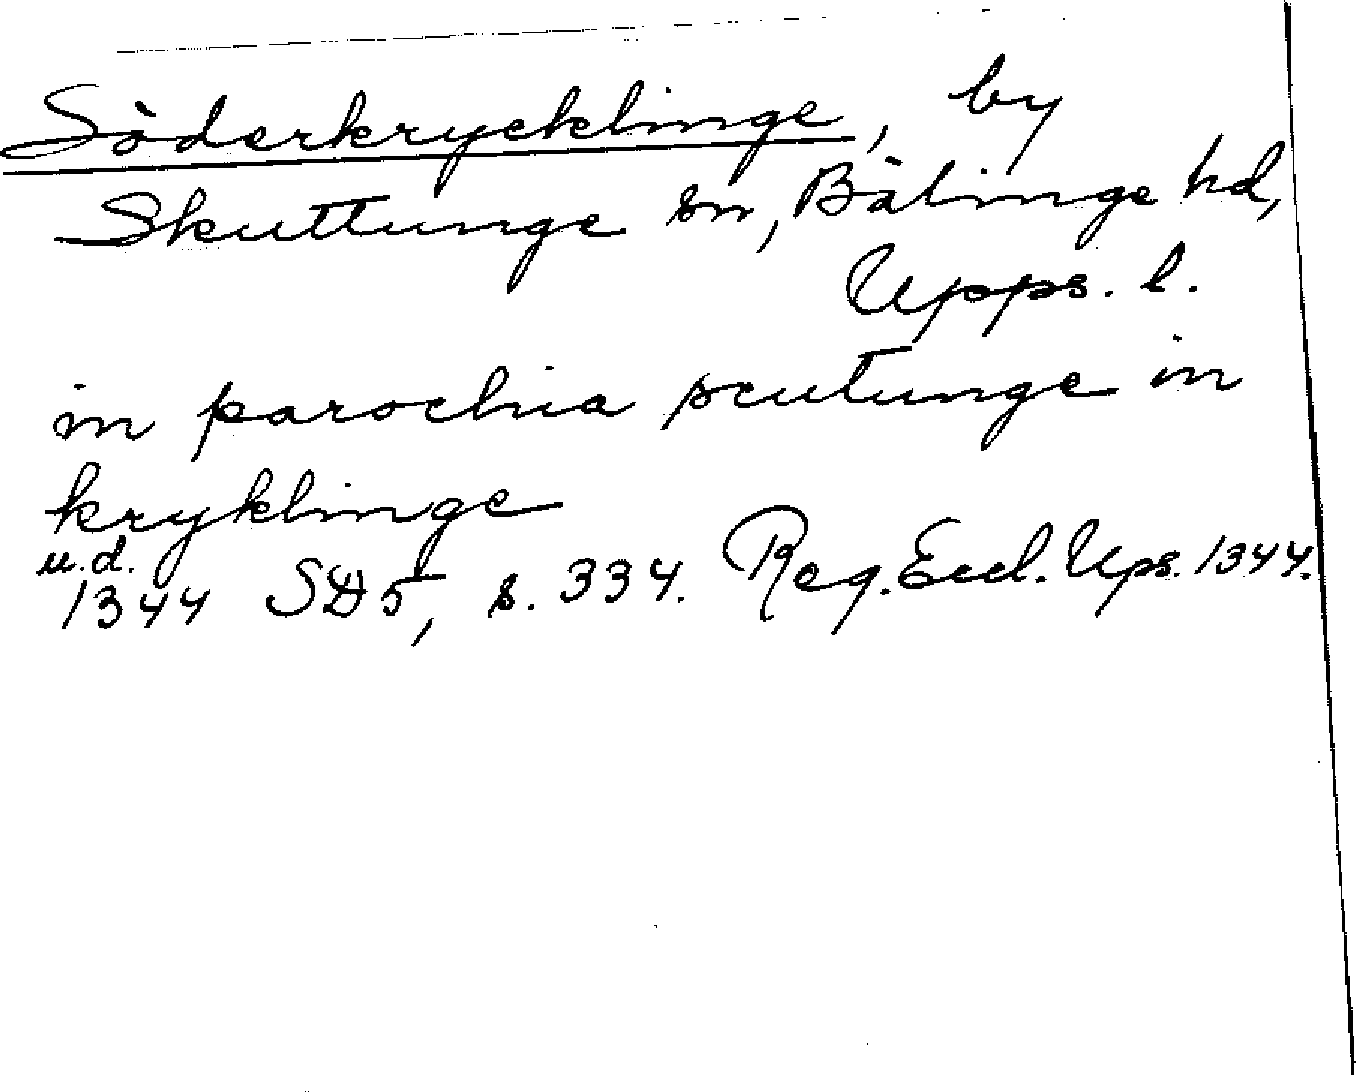 Söderkrycklinge, by
Skuttunge sn, Bälinge hd,
Upps. l.
in parochia scutunge in
kryklinge
u.d.
1344 SD5, s. 334. Reg. Eccl. Ups. 1344.